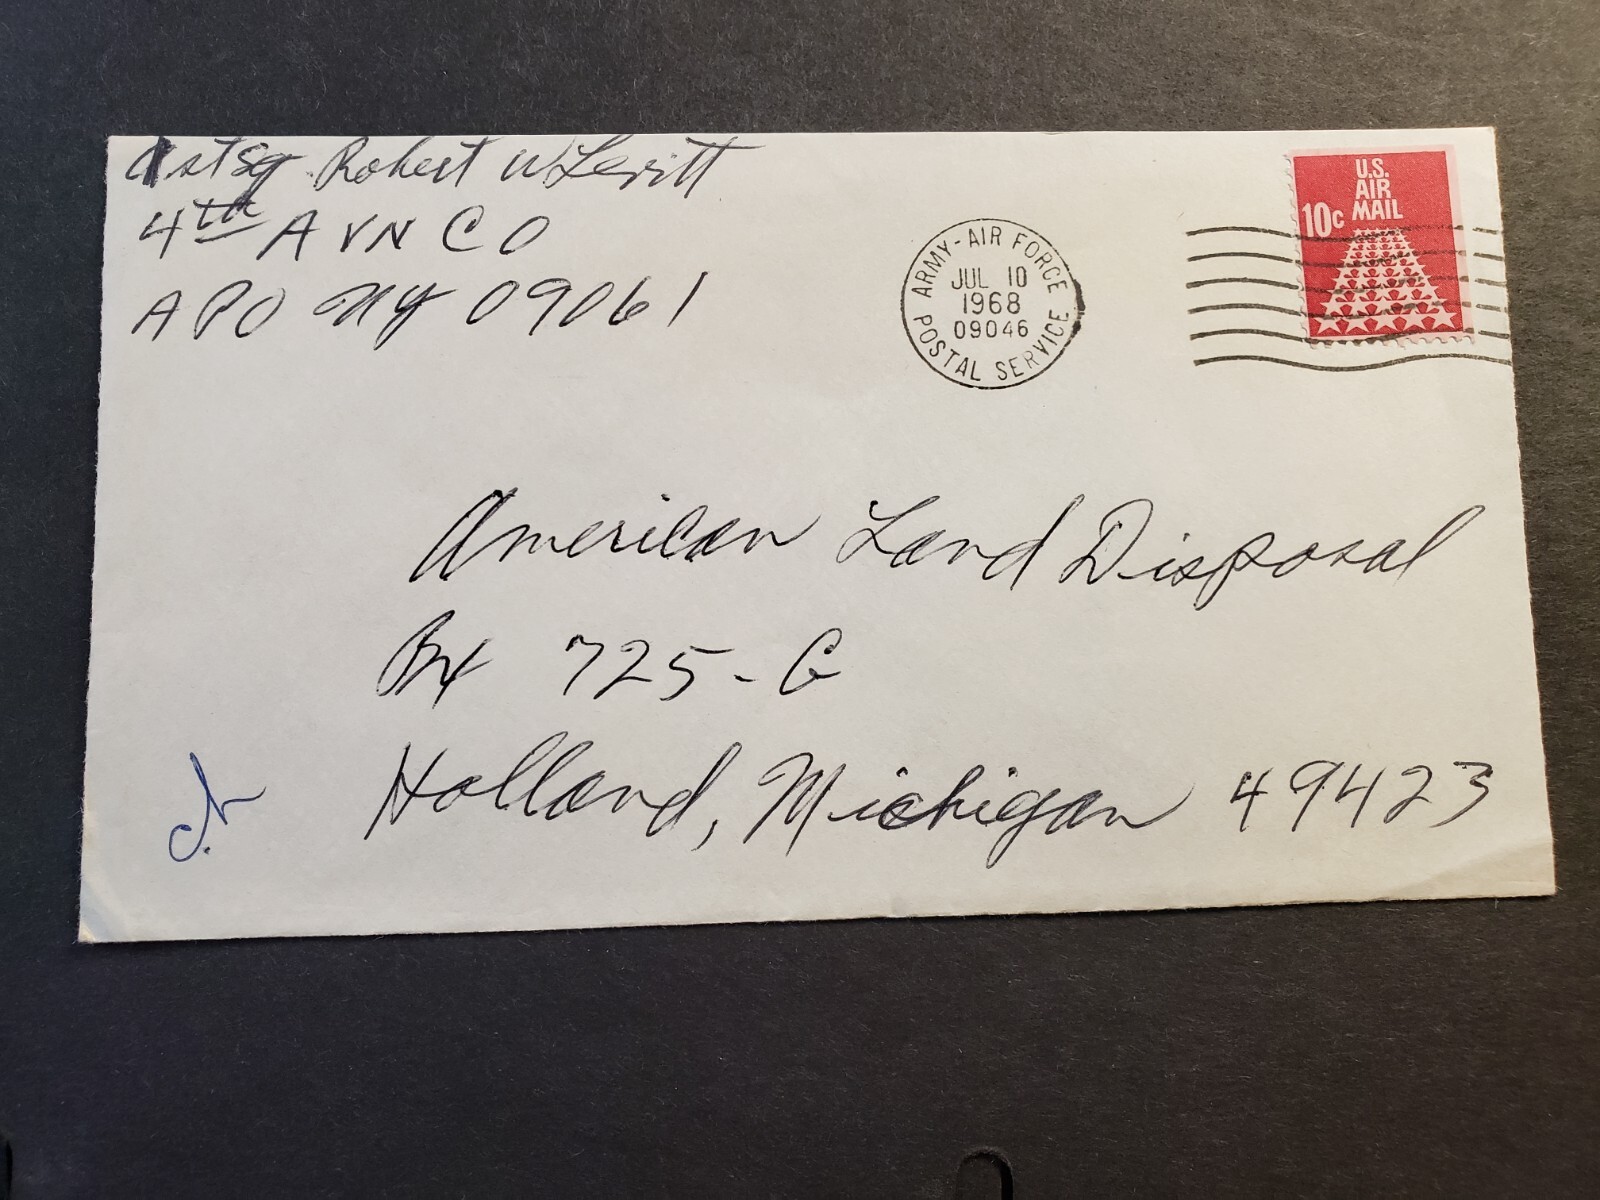 1stSg Robert W Levitt
4th AVN CO
APO NY 09061
ARMY-AIR FORCE
JUL 10
1968
09046
POSTAL SERVICE
U.S.
AIR
MAIL
10c
American Land Disposal
Bx 725-G
Holland, Michigan 49423